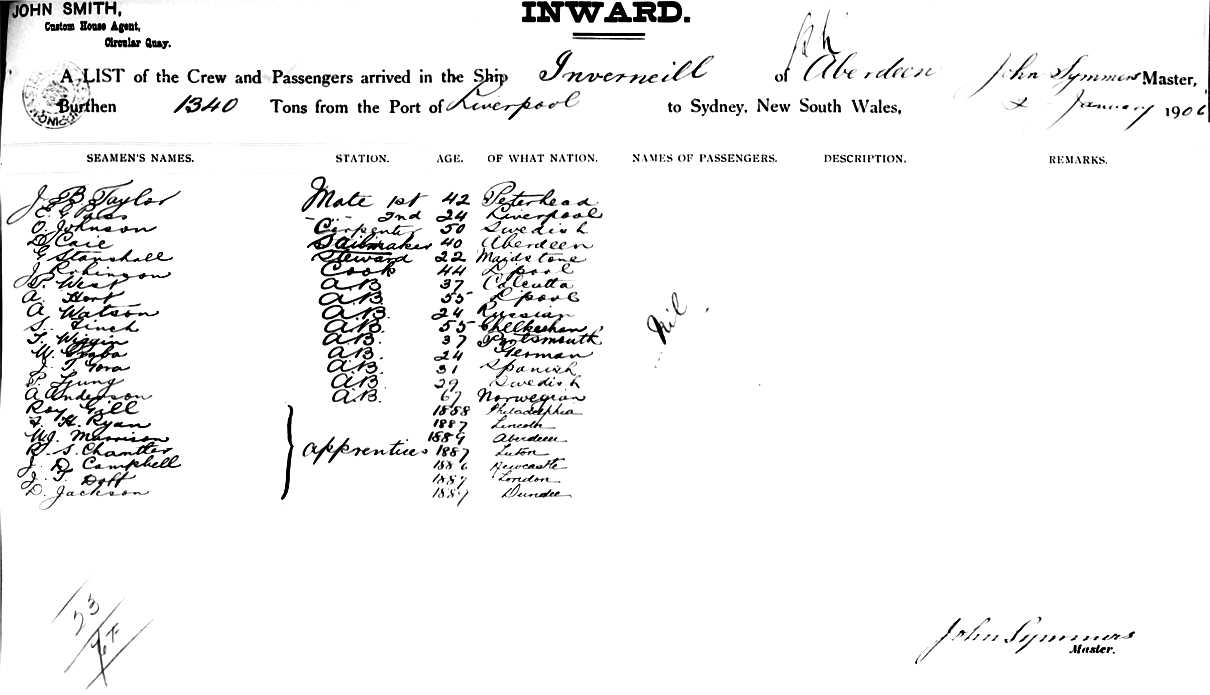 JOHN SMITH,
Custom House Agent,
Circular Quay.
INWARD.
A LIST of the Crew and Passengers arrived in the Ship Inverneill of Aberdeen John Symmers Master,
Burthen 1340 Tons from the Port of Liverpool to Sydney, New South Wales, 2 January 1906
SEAMEN'S NAMES. STATION. AGE. OF WHAT NATION. NAMES OF PASSENGERS. DESCRIPTION. REMARKS.
J. B Taylor Mate 1st 42 Peterhead
2nd 24 Liverpool
O. Johnson Carpenter 50 Swedish
D Caie Sailmaker 40 Aberdeen
G Stanshall Steward 22 Maidstone
J Robinson Cook 44 L.pool
West A.B. 37 Calcutta
A. Hort A.B. 55 L'pool
A Watson A.B. 24 Russian
S. Finch A.B. 55 Cheltenham
T. Wiggin A.B. 37 Portsmouth
W. A.B. 24 German
J. T Gora A.B. 31 Spanish
P. Ljung A.B. 29 Swedish
A Anderson A.B. 67 Norwegian
Roy Gill 1888 Philadelphia
H. Ryan 1887 Lincoln
W.J. Morrison 1889 Aberdeen
R. S. Chantler apprentices 1887 Luton
J. D. Campbell 1886 Newcastle
J. T. Dott 1887 London
D. Jackson 1887 Dundee
Nil
33
John Symmers
Master.